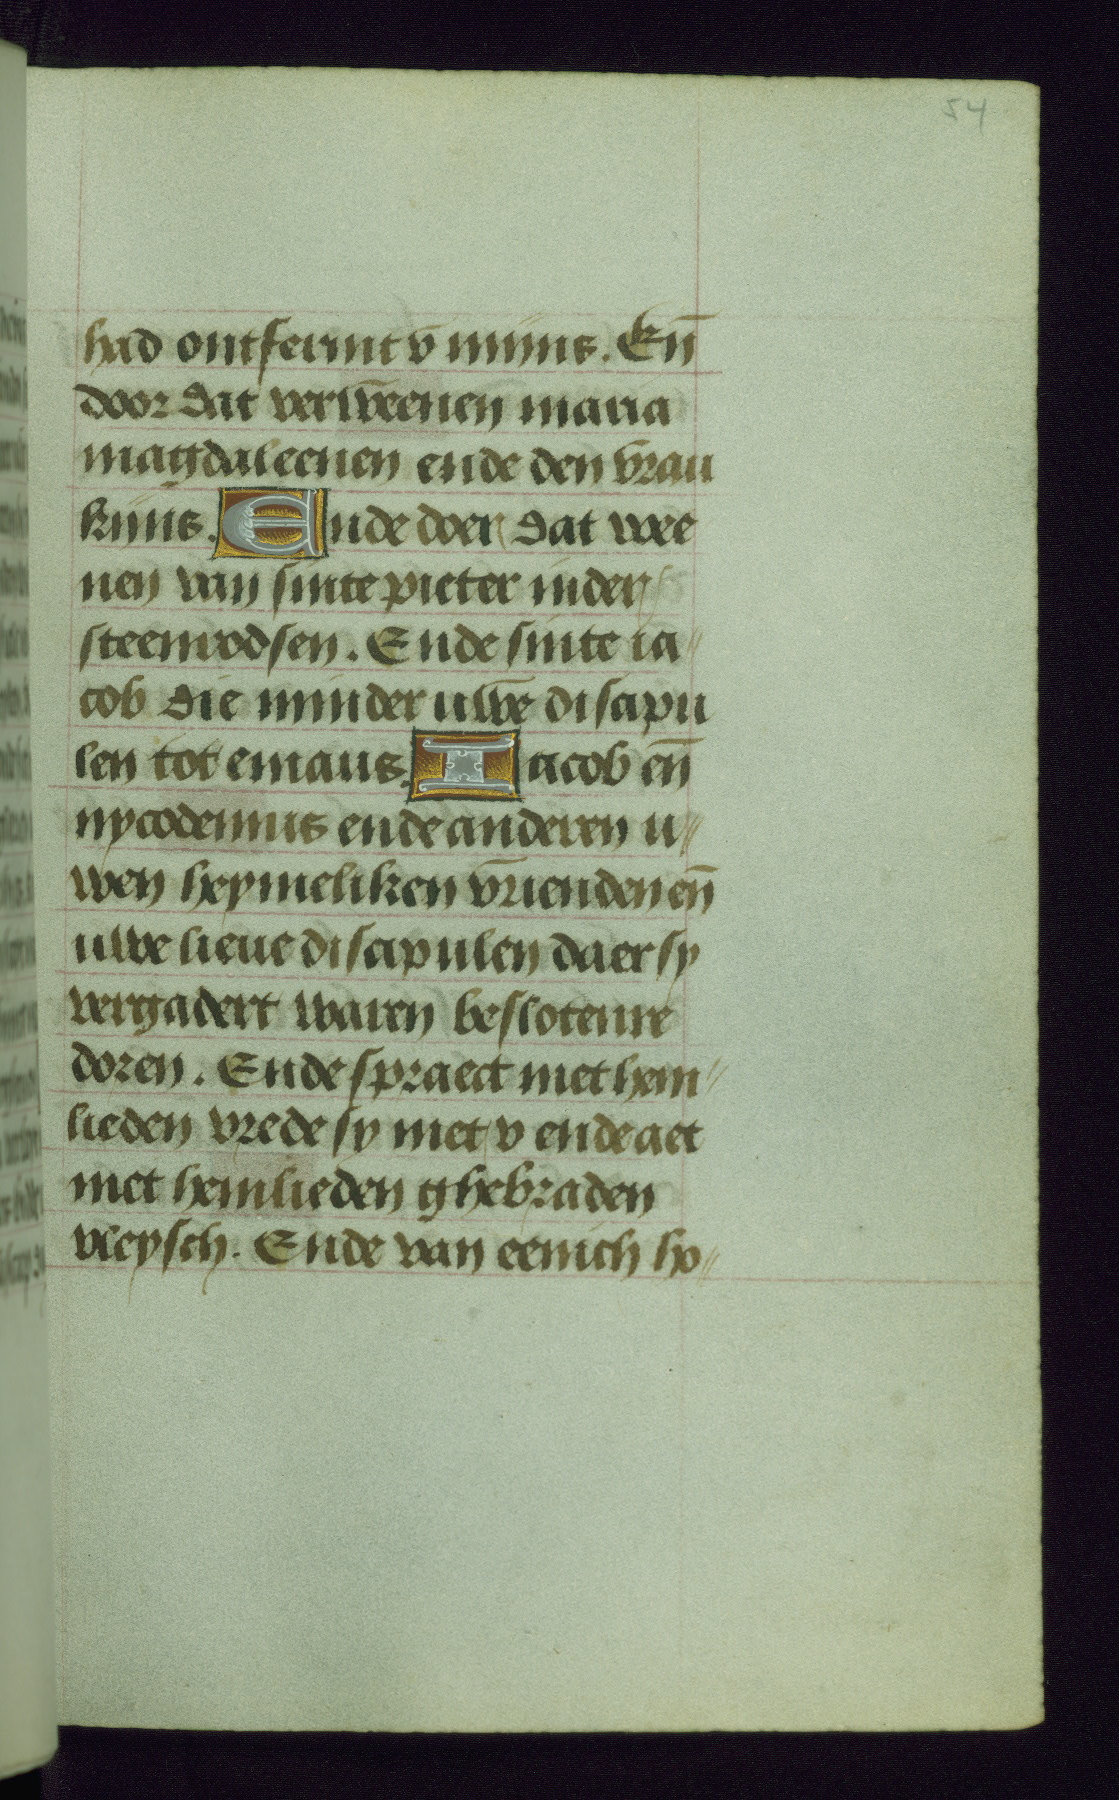 54
had ontfermt v̄ mijns. En̄
door dat verwēenen maria
magdaleenen ende den vrau
kijns. Ende doer dat wee
nen van sinte pieter inder
steenrodsen. Ende sinte ia〃
cob die minder uwē discipu
len tot emaus. Iacob en̄
nycodemus ende anderen u〃
wen heymeliken vrienden en̄
uwe lieue discipulen daer sy
vergadert waren beslotenre
doren. Ende spraect met hem〃
lieden vrede sy met v ende aet
met hemlieden ghebraden
vleysch. Ende van eenich ho〃